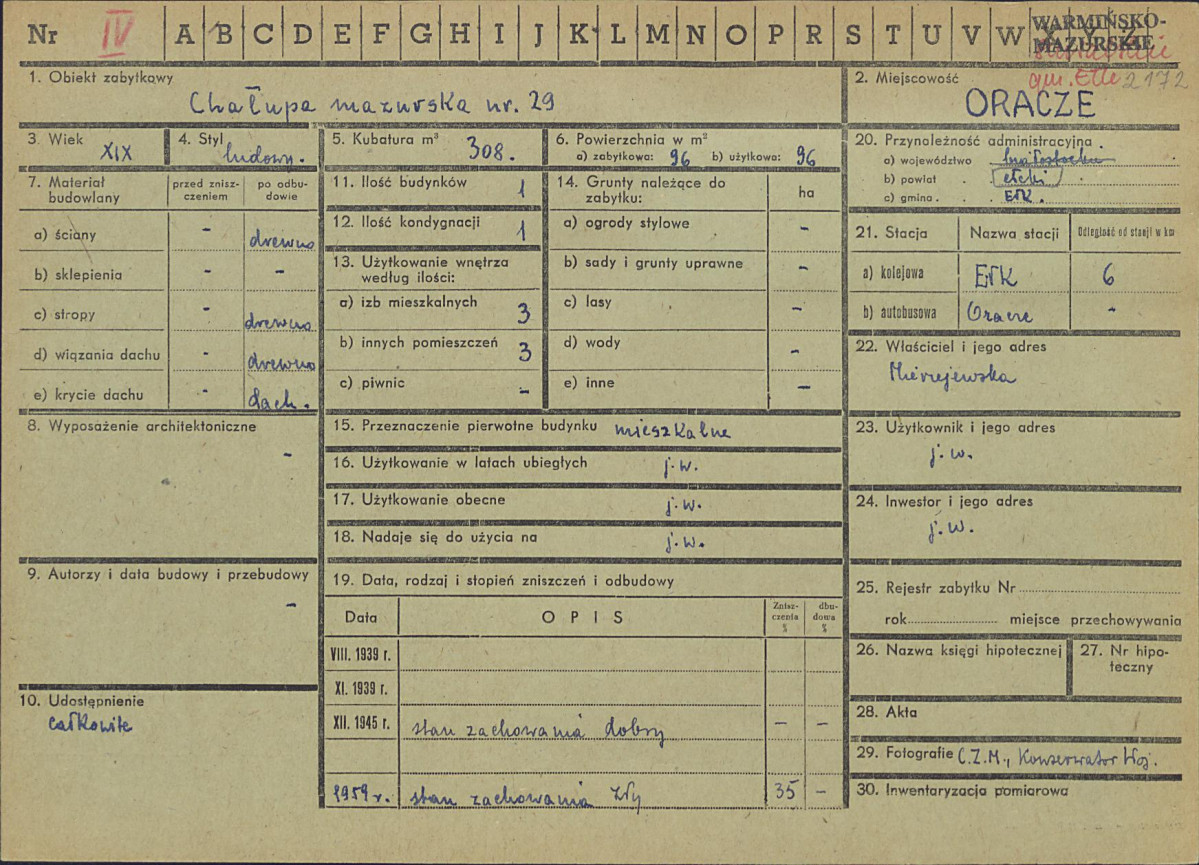 Nr IV A B C D E F G H I J K L M N O P R S T U V W Y Z
WARMIŃSKO-
MAZURSKIE
gm. Ełk 2172
1. Obiekt zabytkowy
Chałupa mazurska nr. 29
2. Miejscowość
ORACZE
3. Wiek
XIX
4. Styl
ludowy.
5. Kubatura m³
308.
6. Powierzchnia w m²
a) zabytkowa: 96 b) użytkowa: 96
7. Materiał budowlany
przed znisz-
czeniem
po odbu-
dowie
a) ściany - drewno
b) sklepienia - -
c) stropy - drewno
d) wiązania dachu - drewno
e) krycie dachu - dach.
8. Wyposażenie architektoniczne
-
9. Autorzy i data budowy i przebudowy
-
10. Udostępnienie
całkowite
11. Ilość budynków 1
12. Ilość kondygnacji 1
13. Użytkowanie wnętrza
według ilości:
a) izb mieszkalnych 3
b) innych pomieszczeń 3
c) piwnic -
14. Grunty należące do
zabytku:
ha
a) ogrody stylowe -
b) sady i grunty uprawne -
c) lasy -
d) wody -
e) inne -
15. Przeznaczenie pierwotne budynku mieszkalne
16. Użytkowanie w latach ubiegłych j.w.
17. Użytkowanie obecne j.w.
18. Nadaje się do użycia na j.w.
19. Data, rodzaj i stopień zniszczeń i odbudowy
Data OPIS
Znisz-
czenia
%
dbu-
dowa
%
VIII. 1939 r.
XI. 1939 r.
XII. 1945 r. stan zachowania dobry - -
1959 r. stan zachowania zły 35 -
20. Przynależność administracyjna.
a) województwo białostockie
b) powiat ełcki
c) gmina Ełk.
21. Stacja Nazwa stacji Odległość od stacji w km
a) kolejowa Ełk 6
b) autobusowa Oracze -
22. Właściciel i jego adres
23. Użytkownik i jego adres
j.w.
24. Inwestor i jego adres
j.w.
25. Rejestr zabytku Nr
rok miejsce przechowywania
26. Nazwa księgi hipotecznej
27. Nr hipo-
teczny
28. Akta
29. Fotografie C.Z.M., Konserwator Woj.
30. Inwentaryzacja pomiarowa